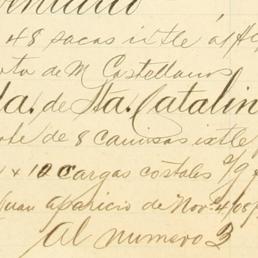 48 sacas ixtle al
de M Castellanos
da. de Sta. Catalin
te de 8 camisas ixtle
x 10 cargas costales a/g
Juan Aparicio de Nov.
Al numero 3